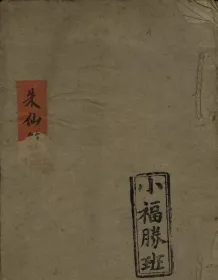 朱仙
小福勝班